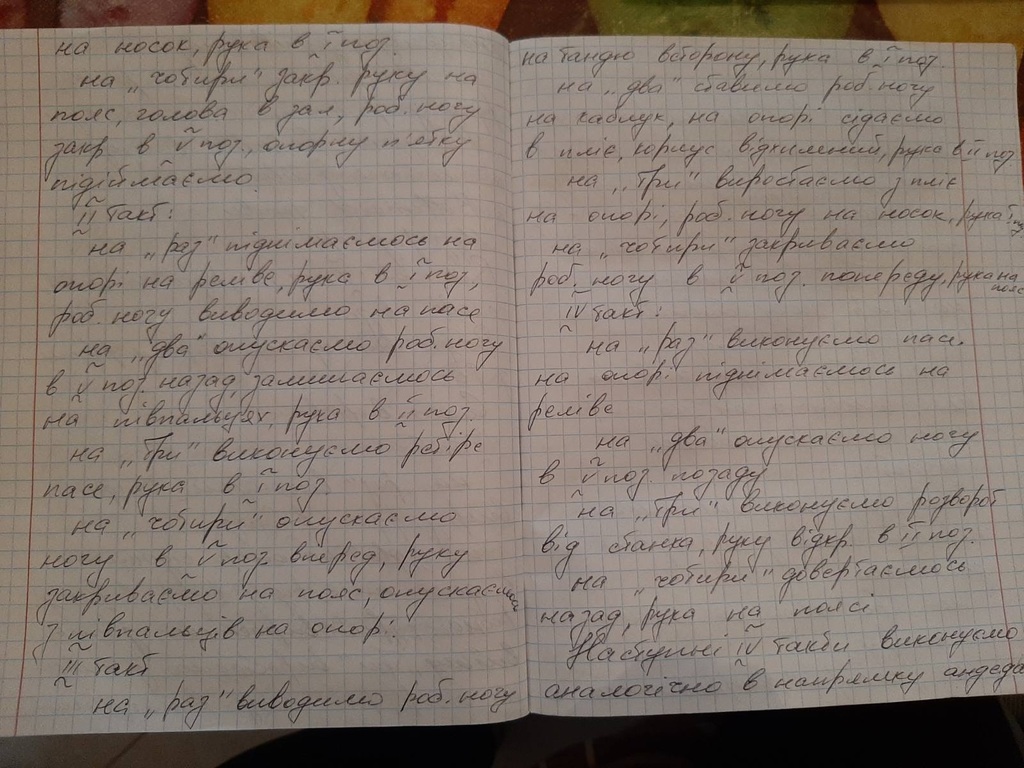 на носок, рука в I поз.
на „чотири" закр. руку на
пояс, голова в зал, роб. ногу
закр в V поз., опорну п'ятку
підіймаємо.
II такт:
на „раз" піднімаємось на
опорі на релівe, рука в I поз,
роб. ногу виводимо на пасе
на „два" опускаємо роб. ногу
в V поз. назад, залишаємось
на півпальцях, рука в II поз.
на „три" виконуємо ретіре
пасе, рука в I поз.
на „чотири" опускаємо
ногу в V поз. вперед, руку
закриваємо на пояс, опускаємось
з півпальців на опорі.
III такт
на „раз" виводимо роб. ногу
на тандю в сторону, рука в I поз.
на „два" ставимо роб. ногу
на каблук, на опорі сідаємо
в пліє, корпус відхилений, рука в II поз
на „три" виростаємо з пліє
на опорі, роб. ногу на носок, рука I поз
на „чотири" закриваємо
роб. ногу в V поз. попереду, рука на пояс
IV такт:
на „раз" виконуємо пасе.
на опорі піднімаємось на
реліве
на „два" опускаємо ногу
в V поз. позаду
на „три" виконуємо розворот
від станка, руку відкр. в II поз.
на „чотири" довертаємось
назад, рука на поясі
Наступні IV такти виконуємо
аналогічно в напрямку андеда